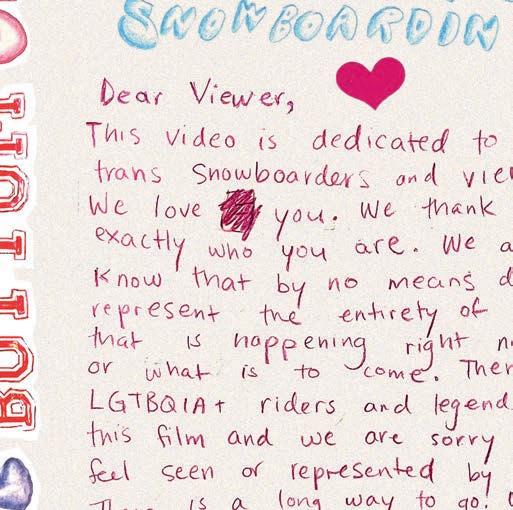 SNOWBOARDIN
Dear Viewer,
This video is dedicated to
trans Snowboarders and
We love you. We thank
exactly who you are. We
Know that by no means
represent the entirety of
that is happening right
or what is to come.
LGTBQIA+ riders and legend
this film and we are sorry
feel seen or represented by
There is a long way to go!